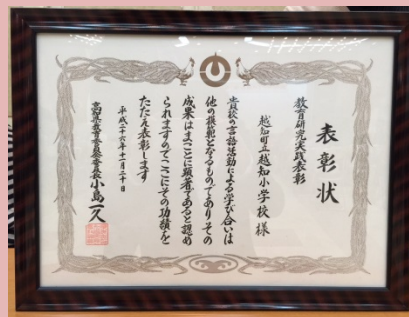 表彰状
教育研究実践表彰
越知町立越知小学校様
貴校の言語活動による学び合いは
他の模範となるものでありその
成果はまことに顕著であると認め
られますのでここにその功績を
たたえ表彰します
平成二十六年十一月二十日
高知県教育委員会委員長小島一久